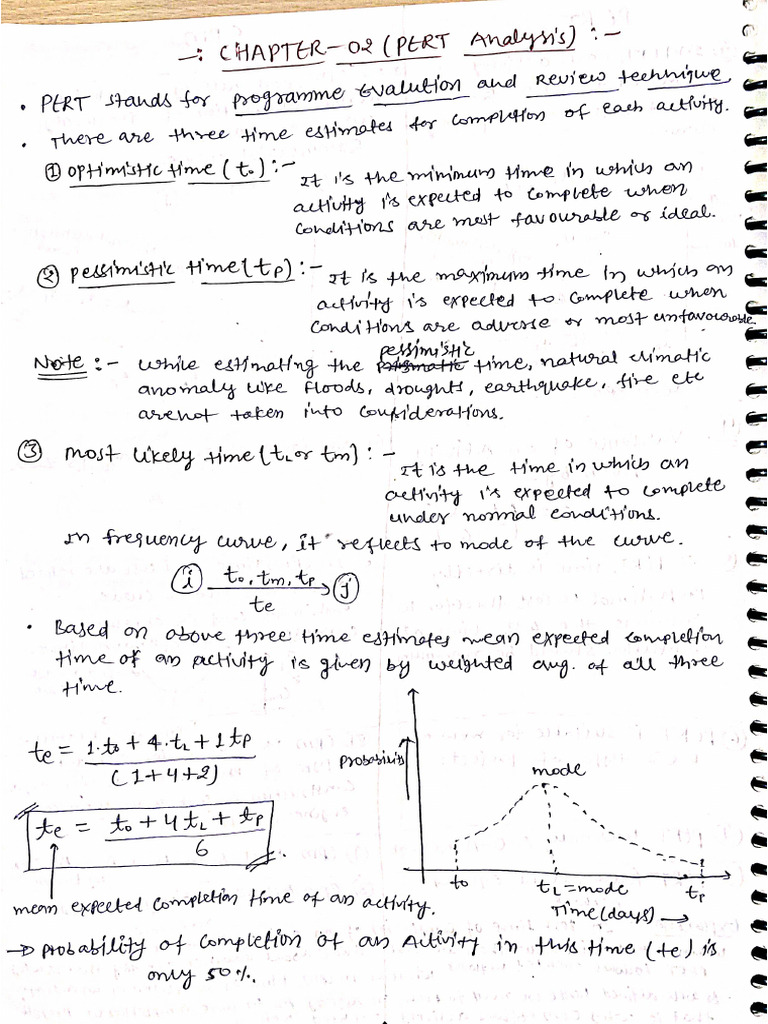 -: CHAPTER-02 (PERT Analysis) :-
• PERT stands for programme Evalution and Review technique.
• There are three time estimates for completion of each activity.
① optimistic time (to) :- It is the minimum time in which an
activity is expected to complete when
conditions are most favourable or ideal.
② pessimistic time (tp) :- It is the maximum time in which an
activity is expected to complete when
conditions are adverse or most unfavourable.
pessimistic
Note :- while estimating the prismatic time, natural climatic
anomaly like floods, droughts, earthquake, fire etc
are not taken into considerations.
③ most likely time (tL or tm) :- It is the time in which an
activity is expected to complete
under normal conditions.
In frequency curve, it reflects to mode of the curve.
i to, tm, tp j
te
• Based on above three time estimates mean expected completion
time of an activity is given by weighted avg. of all three
time.
te = 1.to + 4.tL + 1tp
(1+4+2)
te = to + 4tL + tp
6
mean expected completion time of an activity.
probability
mode
to
tL = mode
tp
Time (days) →
→ probability of completion of an Activity in this time (te) is
only 50%.